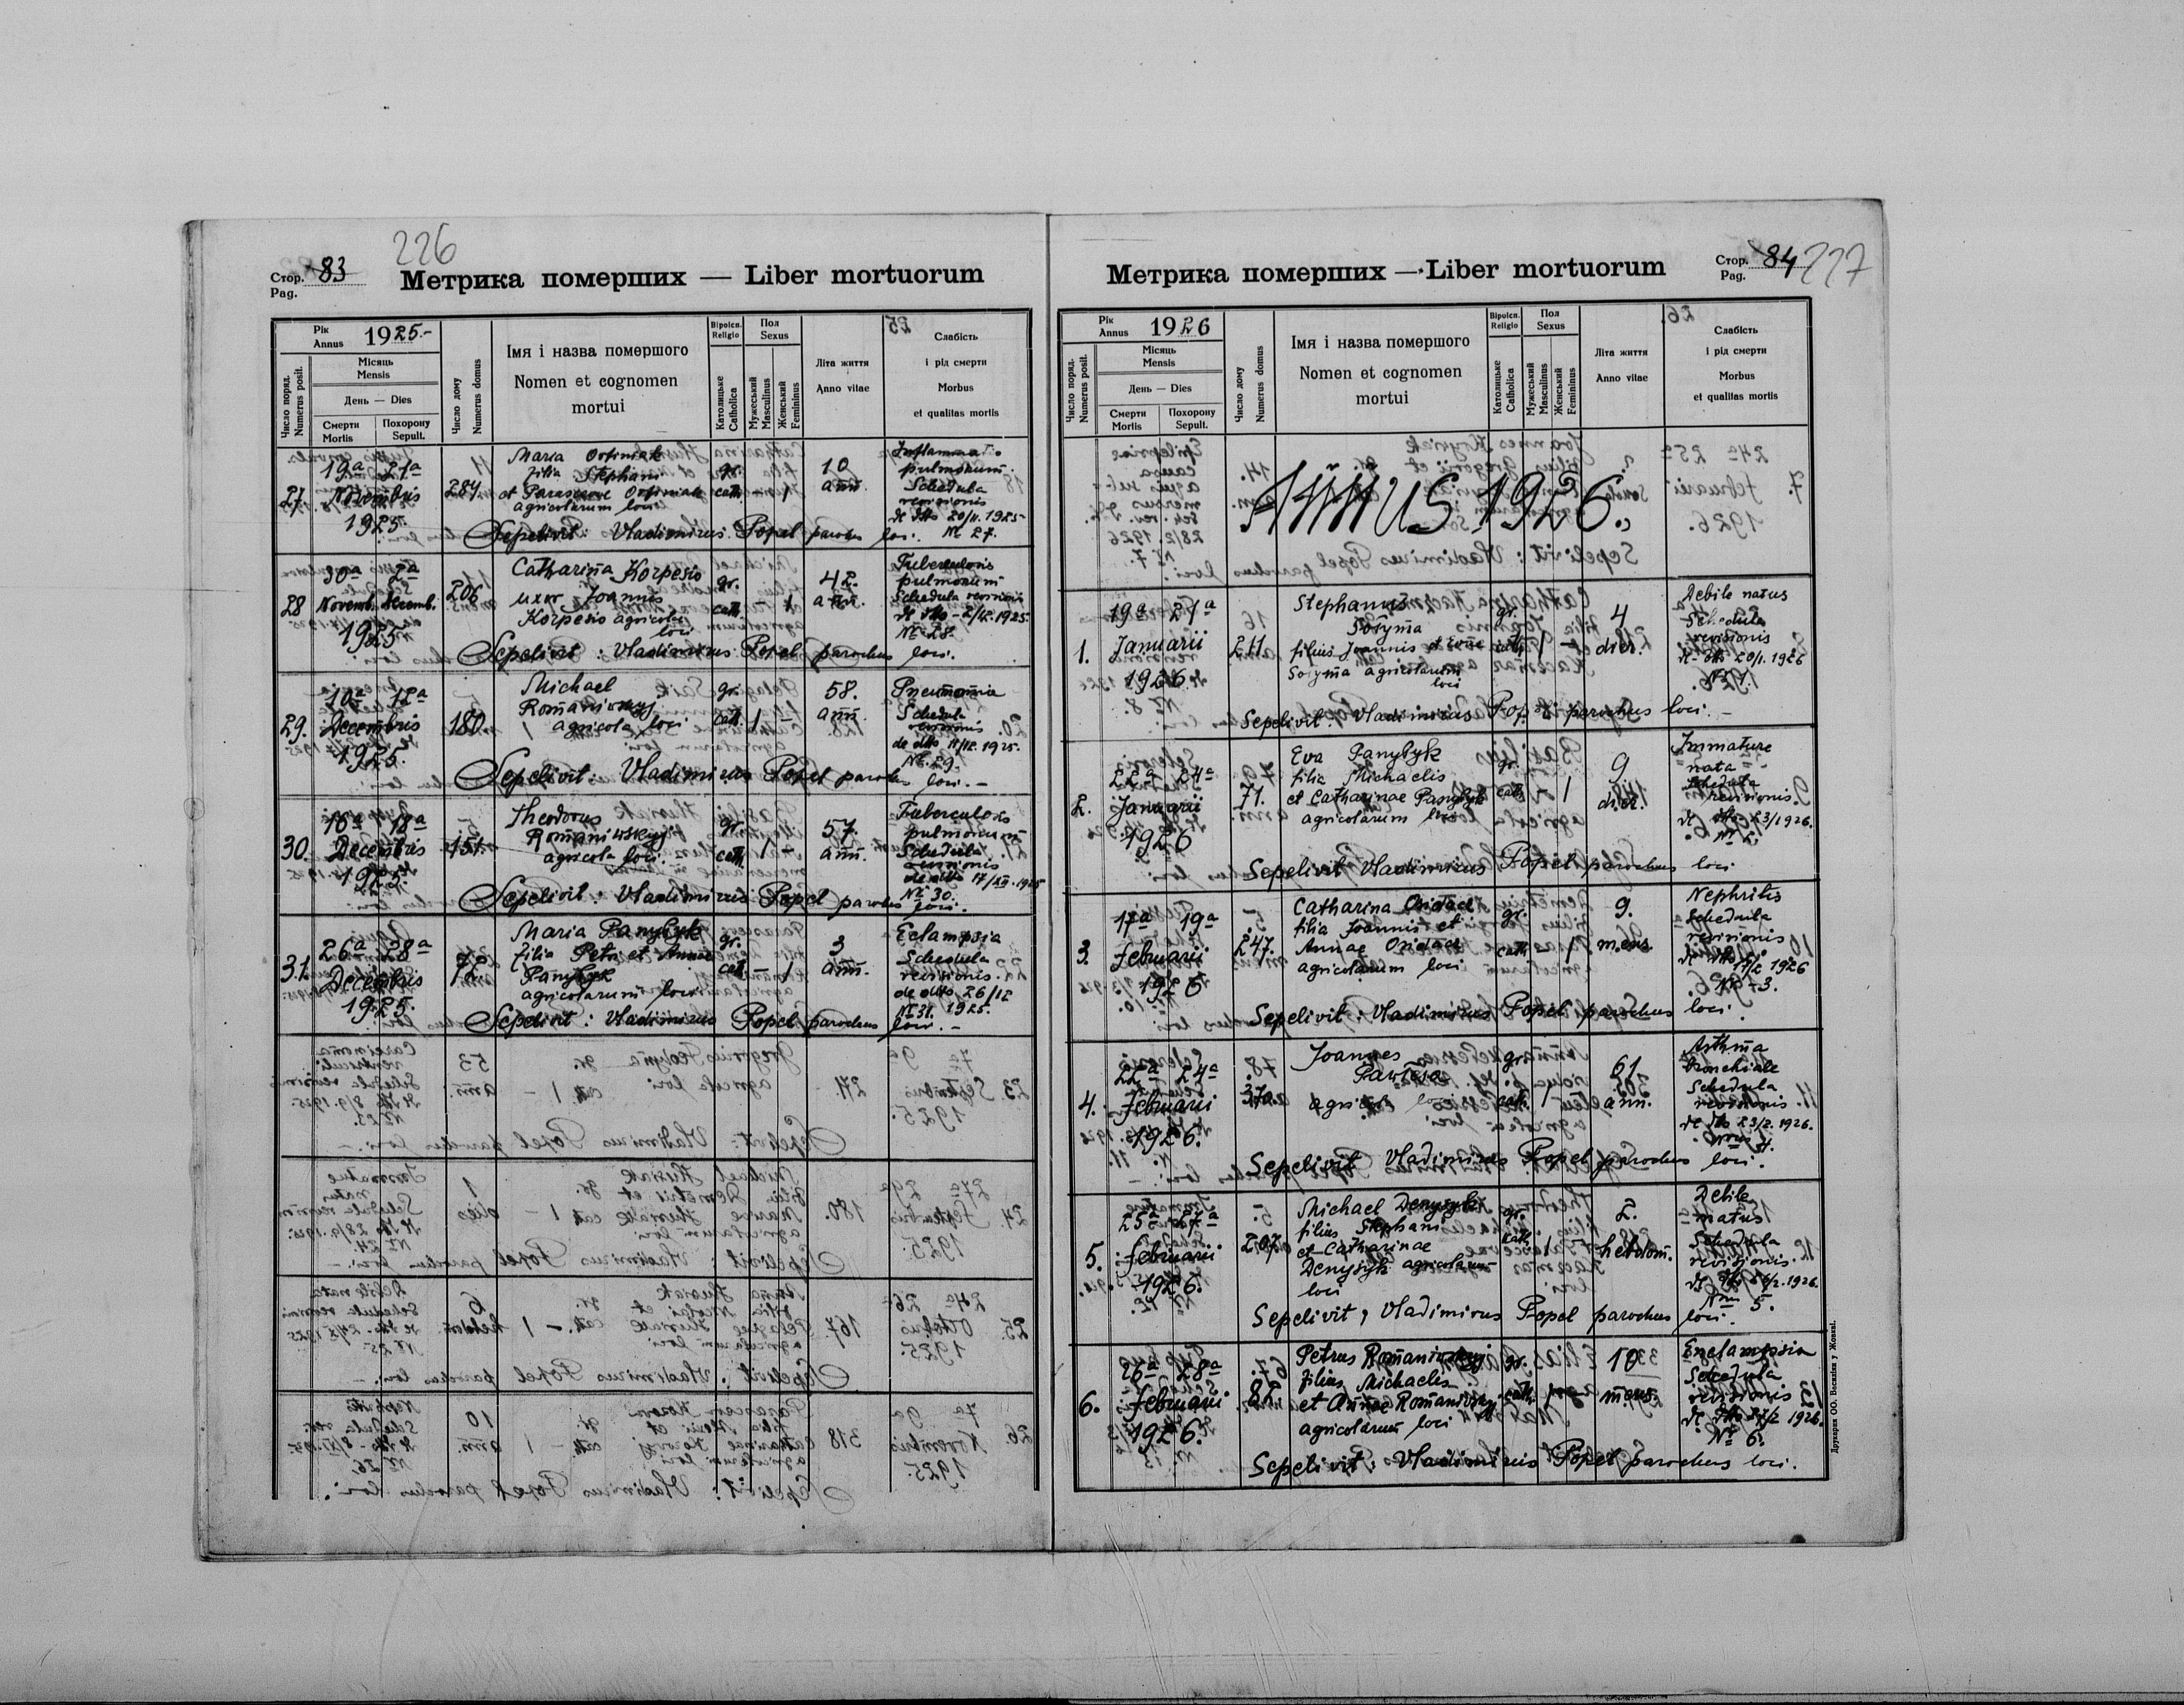 226
Стор. 83
Pag.
Метрика померших — Liber mortuorum
Рік
Annus 1925.-
Місяць
Mensis
День — Dies
Смерти
Mortis
Похорону
Sepult.
Число поряд.
Numerus posit.
Число дому
Numerus domus
Імя і назва помершого
Nomen et cognomen
mortui
Віроісп.
Religio
Католицьке
Catholica
Пол
Sexus
Мужеський
Masculinus
Женський
Femininus
Літа життя
Anno vitae
Слабість
і рід смерти
Morbus
et qualitas mortis
27. 19a 21a
Novembris
1925.
284
Maria
filia Stephani
et Parascevae
agricolarum loci
gr.
cath. - 1
10
ann.
Inflammatio
pulmonum.
Schedula
revisionis
de dtto 20/11.1925
№ 27.
Sepelivit: Vladimirus Popel parochus loci.
28 30a 2a
Novemb. Decemb.
1925
206
Catharina Korpesio
uxor Joannis
Korpesio agricolae
loci
gr.
cath. - 1
42.
ann.
Tuberculosis
pulmonum
Schedula revisionis
de dtto - 2/12.1925.
№ 28.
Sepelivit: Vladimirus Popel parochus loci.
29. 10a 12a
Decembris
1925.
180.
Michael
Romaniwskyj
agricola loci
gr.
cath. 1 -
58.
ann.
Pneumonia
Schedula
revisionis
de dtto 11/12.1925.
№ 29.
Sepelivit: Vladimirus Popel parochus loci.-
30. 16a 18a
Decembris
1925.
151.
Theodorus
Romaniwskyj
agricola loci.
gr.
cath. 1 -
57.
ann.
Tuberculosis
pulmonum
Schedula
revisionis
de dtto 17/XII.1925
№ 30.
Sepelivit: Vladimirus Popel parochus loci.
31. 26a 28a
Decembris
1925.
72.
Maria Panybyk
filia Petri et Annae
Panybyk
agricolarum loci
gr.
cath. - 1
3
ann.
Eclampsia
Schedula
revisionis.
de dtto 26/12
№ 31. 1925.
Sepelivit: Vladimirus Popel parochus loci.-
Метрика померших — Liber mortuorum
Стор. 84
Pag.
227
Рік
Annus 1926
Місяць
Mensis
День — Dies
Смерти
Mortis
Похорону
Sepult.
Число поряд.
Numerus posit.
Число дому
Numerus domus
Імя і назва помершого
Nomen et cognomen
mortui
Віроісп.
Religio
Католицьке
Catholica
Пол
Sexus
Мужеський
Masculinus
Женський
Femininus
Літа життя
Anno vitae
Слабість
і рід смерти
Morbus
et qualitas mortis
ANNUS 1926.
1. 19a 21a
Januarii
1926
211.
Stephanus
Sosyma
filius Joannis et
Sosyma agricolarum
loci
gr.
cath. 1 -
4
dier.
Debile natus
Schedula
revisionis
de dtto 20/1.1926
№ 1.
Sepelivit: Vladimirus Popel parochus loci.-
2. 22a 24a
Januarii
1926
71.
Eva Panybyk
filia Michaelis
et Catharinae Panybyk
agricolarum loci
gr.
cath. - 1
9
dier.
Immature
nata
Schedula
revisionis.
de dtto 23/1926.
№ 2.
Sepelivit Vladimirus Popel parochus loci
3. 17a 19a
Februarii
1926
247.
Catharina
filia Joannis et
Annae
agricolarum loci
gr.
cath. 1
9.
mens.
Nephritis
Schedula
revisionis
de dtto 1926
№ - 3.
Sepelivit: Vladimirus Popel parochus loci.
4. 22a 24a
Februarii
1926.
37a.
Joannes
agricola loci
gr.
cath. 1 -
61.
ann.
Asthma
bronchiale
Schedula
revisionis.
de dtto 23/2.1926.
4.
Sepelivit Vladimirus Popel parochus loci.
5. 25a 27a
Februarii
1926.
207.
Michael Denysyk
filius Stephani
et Catharinae
Denysyk agricolarum
loci
gr.
cath. 1
2.
hebdom.
Debile
natus
Schedula
revisionis.
de dtto 26/2.1926.
5.
Sepelivit, Vladimirus Popel parochus loci.
6. 26a 28a
Februarii
1926.
82.
Petrus Romaniwskyj
filius Michaelis
et Annae Romaniwskyj
agricolarum loci
gr.
cath.
10
mens.
Enclampsia
Schedula
revisionis
de dtto 27/2 1926.
№ 6.
Sepelivit: Vladimirus Popel parochus loci.
Друкарня ОО. Василіян у Жовкві.